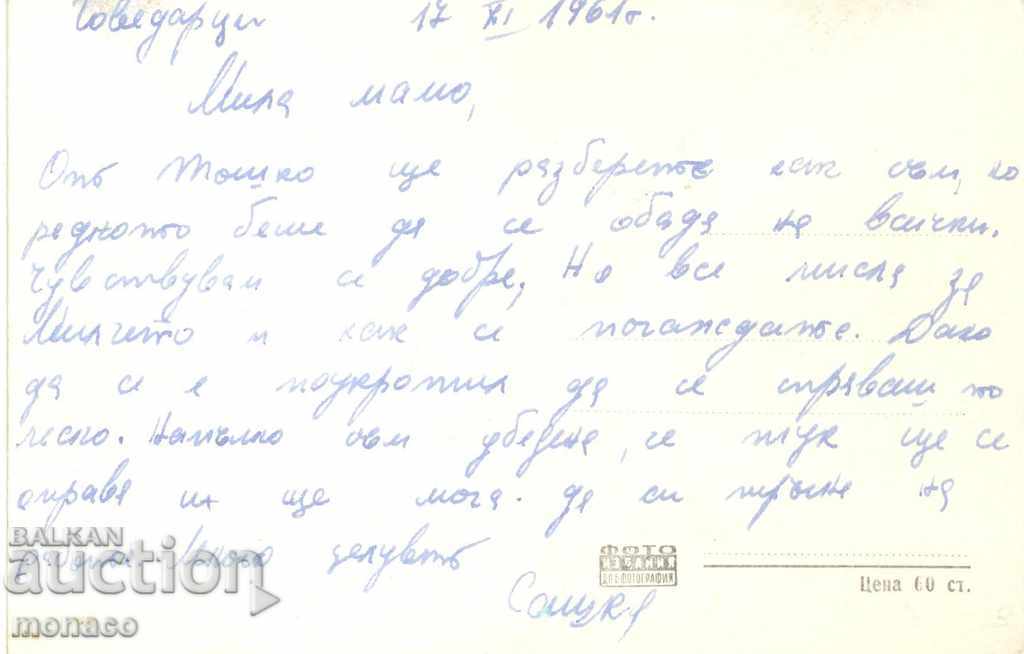 Говедарци 17 XI 1961г.
Мила мамо,
От Тошко ще разберете как съм, но
редното беше да се обадя на всички.
Чувствувам се добре, Но все мисля за
Милчето и как се погаждате. Дано
да се е поукротил да се справяш по
леско. Напълно съм убедена, че тук ще се
оправя и ще мога да си тръгна на
работа Много целувки
Сашка
ФОТО
ИЗДАНИЯ
ДП БЪЛГ. ФОТОГРАФИЯ
Цена 60 ст.
BALKAN
auction
monaco